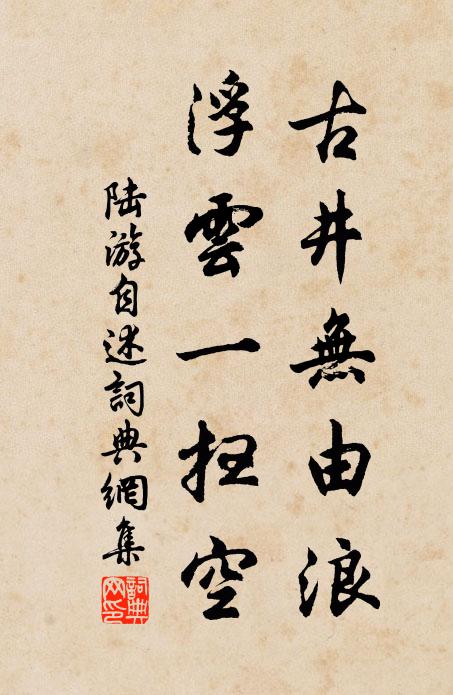 古井無由浪
浮雲一扫空
陆游自述詞典網集
詞典網印